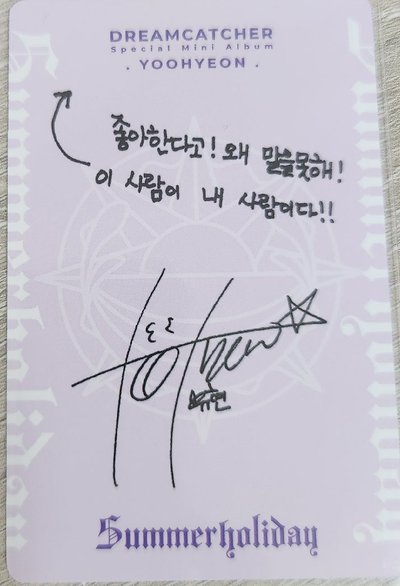 DREAMCATCHER
Special Mini Album
. YOOHYEON .
좋아한다고! 왜 말을 못해!
이 사람이 내 사람이다!!
유현
Summerholiday
Summerholiday
Summerholiday